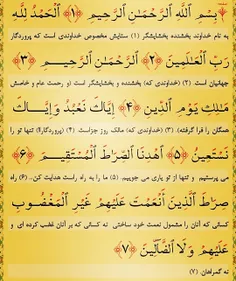 بِسْمِ ٱللَّهِ ٱلرَّحْمَٰنِ ٱلرَّحِيمِ ﴿١﴾ ٱلْحَمْدُ لِلَّهِ
به نام خداوند بخشنده و بخشایشگر (۱) ستایش مخصوص خداوندی است که پروردگار
رَبِّ ٱلْعَٰلَمِينَ ﴿٢﴾ ٱلرَّحْمَٰنِ ٱلرَّحِيمِ ﴿٣﴾
جهانیان است (۲) (خداوندی که) بخشنده و بخشایشگر است (و رحمت عام و خاصش
مَٰلِكِ يَوْمِ ٱلدِّينِ ﴿٤﴾ إِيَّاكَ نَعْبُدُ وَإِيَّاكَ
همگان را فرا گرفته) (۳) (خداوندی که) مالک روز جزاست (۴) (پروردگارا!) تنها تو را
نَسْتَعِينُ ﴿٥﴾ ٱهْدِنَا ٱلصِّرَٰطَ ٱلْمُسْتَقِيمَ ﴿٦﴾
می پرستیم و تنها از تو یاری می جوییم. (۵) ما را به راه راست هدایت کن.. (۶) راه
صِرَٰطَ ٱلَّذِينَ أَنْعَمْتَ عَلَيْهِمْ غَيْرِ ٱلْمَغْضُوبِ
کسانی که آنان را مشمول نعمت خود ساختی نه کسانی که بر آنان غضب کرده ای و
عَلَيْهِمْ وَلَا ٱلضَّآلِّينَ ﴿٧﴾
نه گمراهان. (۷)